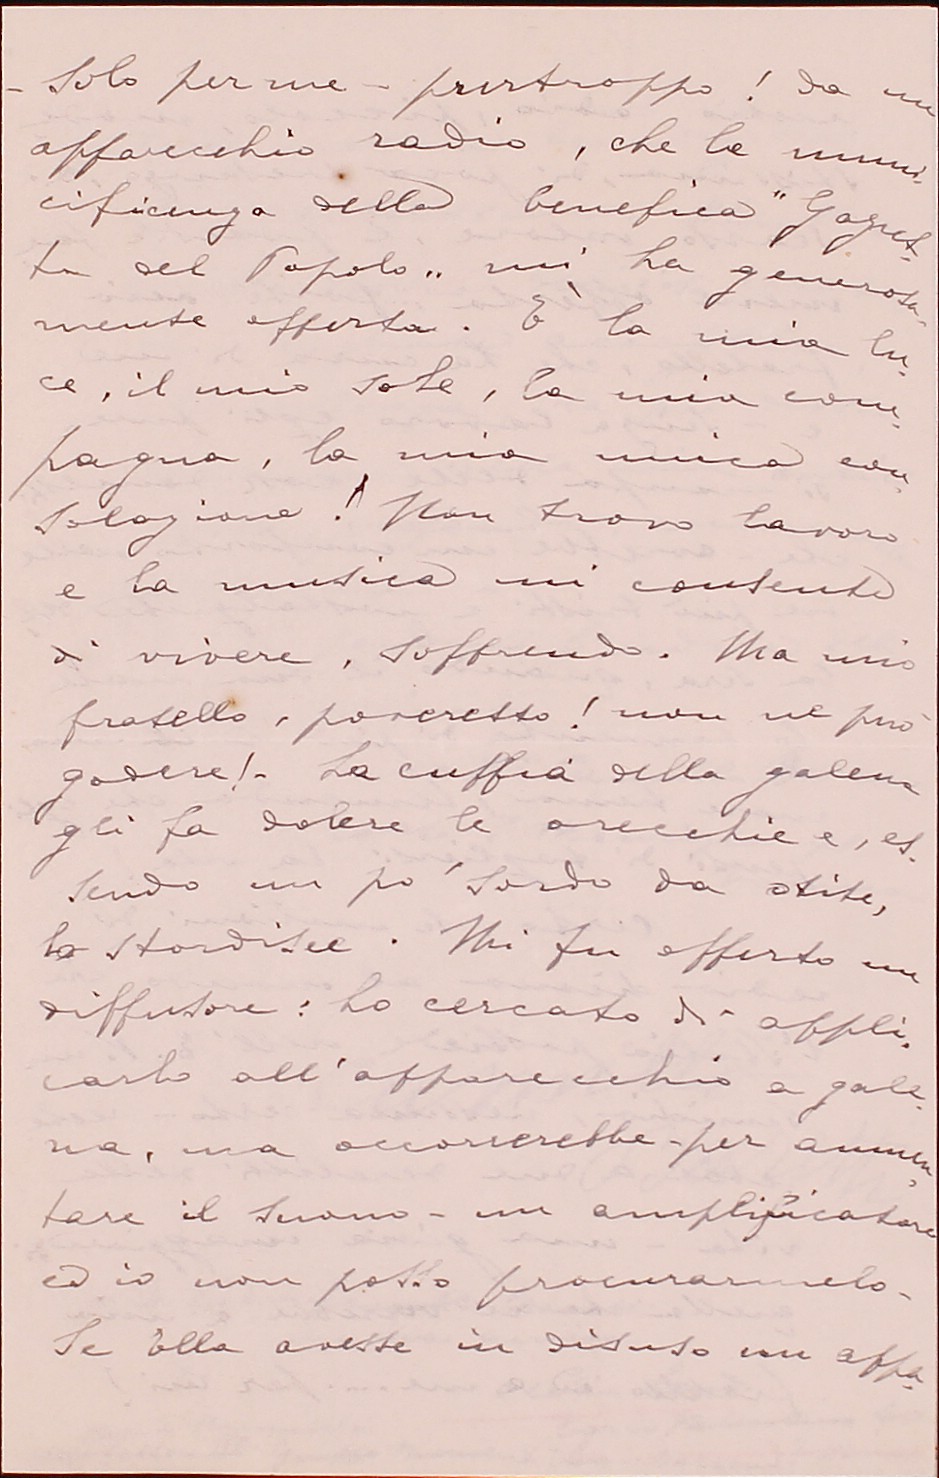 - Solo per me - purtroppo! da un
apparecchio radio, che la muni-
ficenza della benefica "Gazzet-
ta del Popolo" mi ha generosa-
mente offerta. È la mia lu-
ce, il mio sole, la mia com-
pagna, la mia unica con-
solazione! Non trovo lavoro
e la musica mi consente
di vivere, soffrendo. Ma mio
fratello, poveretto! non ne può
godere! - La cuffia della galena
gli fa dolere le orecchie e, es-
sendo un po' sordo da otite,
lo stordisce. Mi fu offerto un
diffusore: ho cercato di appli-
carlo all'apparecchio a gale-
na, ma occorrerebbe - per aumen-
tare il suono - un amplificatore
ed io non posso procurarmelo -
Se Ella avesse in disuso un appa-